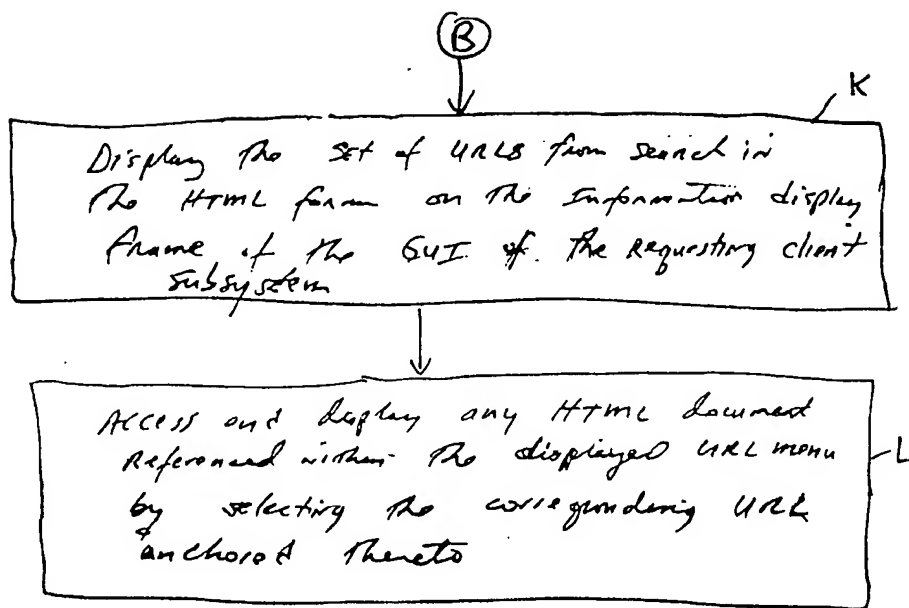 B
K
Display the set of URLs from search in
the HTML form on the Information display
frame of the GUI of the requesting client
subsystem
Access and display any HTML document
Referenced within the displayed URL menu
by selecting the corresponding URL
& anchored thereto
L